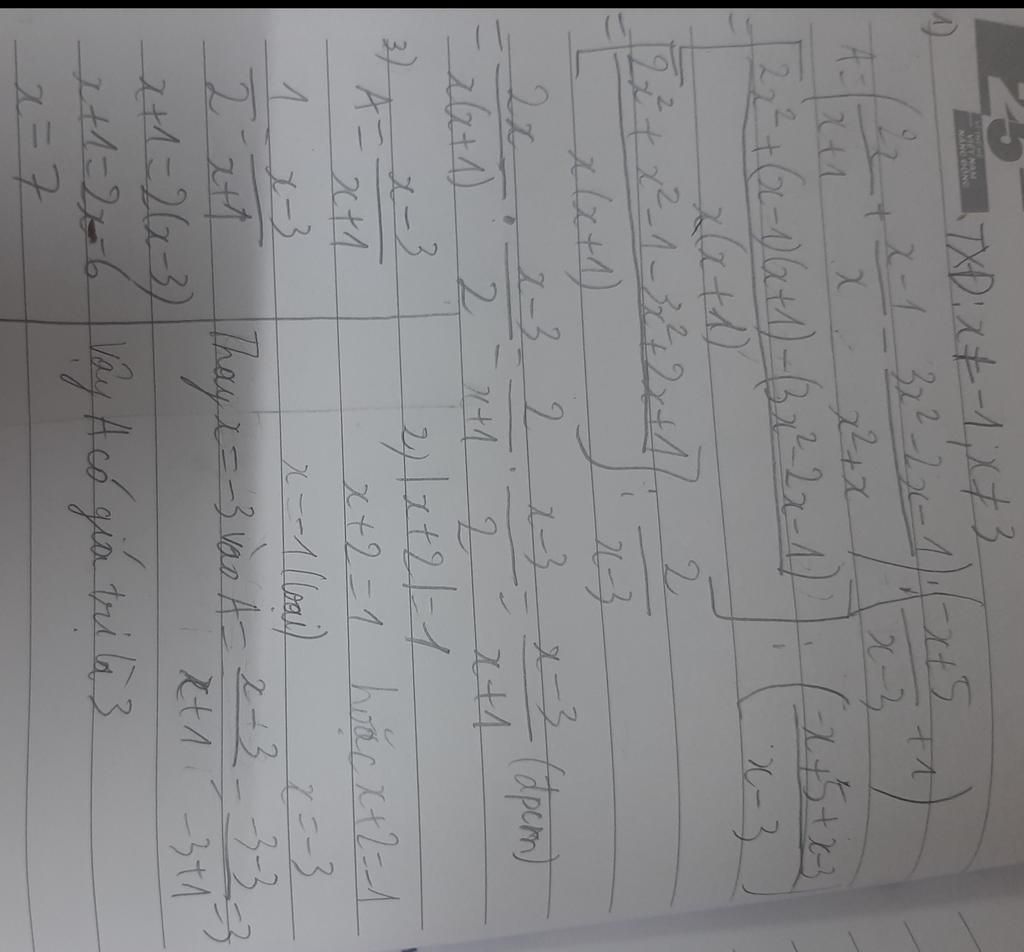 25
VIỆT NAM
NĂNG ĐỘNG
1) TXĐ: x ≠ -1; x ≠ 3
A = (2x/x+1 + x-1/x - 3x²-2x-1/x²+x) : (-x+5/x-3 + 1)
= [2x²+(x-1)(x+1)-(3x²-2x-1)/x(x+1)] : (-x+5+x-3/x-3)
= [2x²+x²-1-3x²+2x+1/x(x+1)] : 2/x-3
= 2x/x(x+1) . x-3/2 = 2/x+1 . x-3/2 = x-3/x+1 (đpcm)
3) A = x-3/x+1
1/2 = x-3/x+1
x+1=2(x-3)
x+1=2x-6
x=7
2) |x+2|=1
x+2=1 hoặc x+2=-1
x=-1(loại) x=-3
Thay x=-3 vào A = x+3/x+1 = -3-3/-3+1 = 3
Vậy A có giá trị là 3